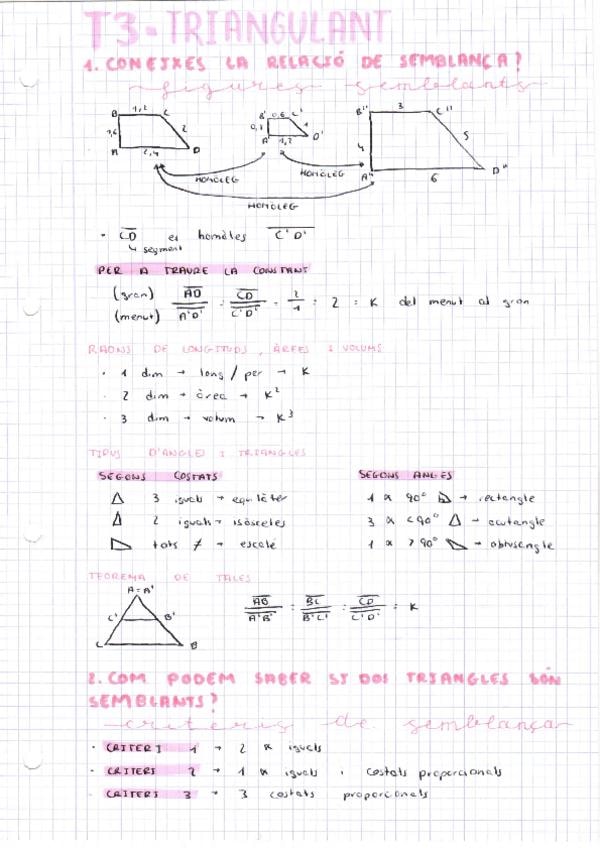 T3 - TRIANGULANT
1. CONEIXES LA RELACIÓ DE SEMBLANÇA?
figures semblants
B 1,2 C
2
A 2,4 D
B' 0,6 C'
1
A' 1,2 D'
B'' 3 C''
4 5
A'' 6 D''
HOMÒLEG
HOMÒLEG
HOMÒLEG
· CD es homòleg C'D'
↳ segment
PER A TRAURE LA CONSTANT
(gran) AD / (menut) A'D' = CD / C'D' = 2 / 1 = 2 = K del menut al gran
RAONS DE LONGITUDS, ÀREES I VOLUMS
· 1 dim → long / per → K
· 2 dim → àrea → K²
· 3 dim → volum → K³
TIPUS D'ANGLES I TRIANGLES
SEGONS COSTATS
△ 3 iguals → equilàter
△ 2 iguals → isòsceles
tots ≠ → escalé
SEGONS ANGLES
1 α 90° → rectangle
3 α < 90° △ → acutangle
1 α > 90° → obtusangle
TEOREMA DE TALES
A = A'
C' B'
C B
AB / A'B' = BC / B'C' = CD / C'D' = K
2. COM PODEM SABER SI DOS TRIANGLES SÓN
SEMBLANTS?
criteris de semblança
· CRITERI 1 → 2 α iguals
· CRITERI 2 → 1 α iguals i costats proporcionals
· CRITERI 3 → 3 costats proporcionals